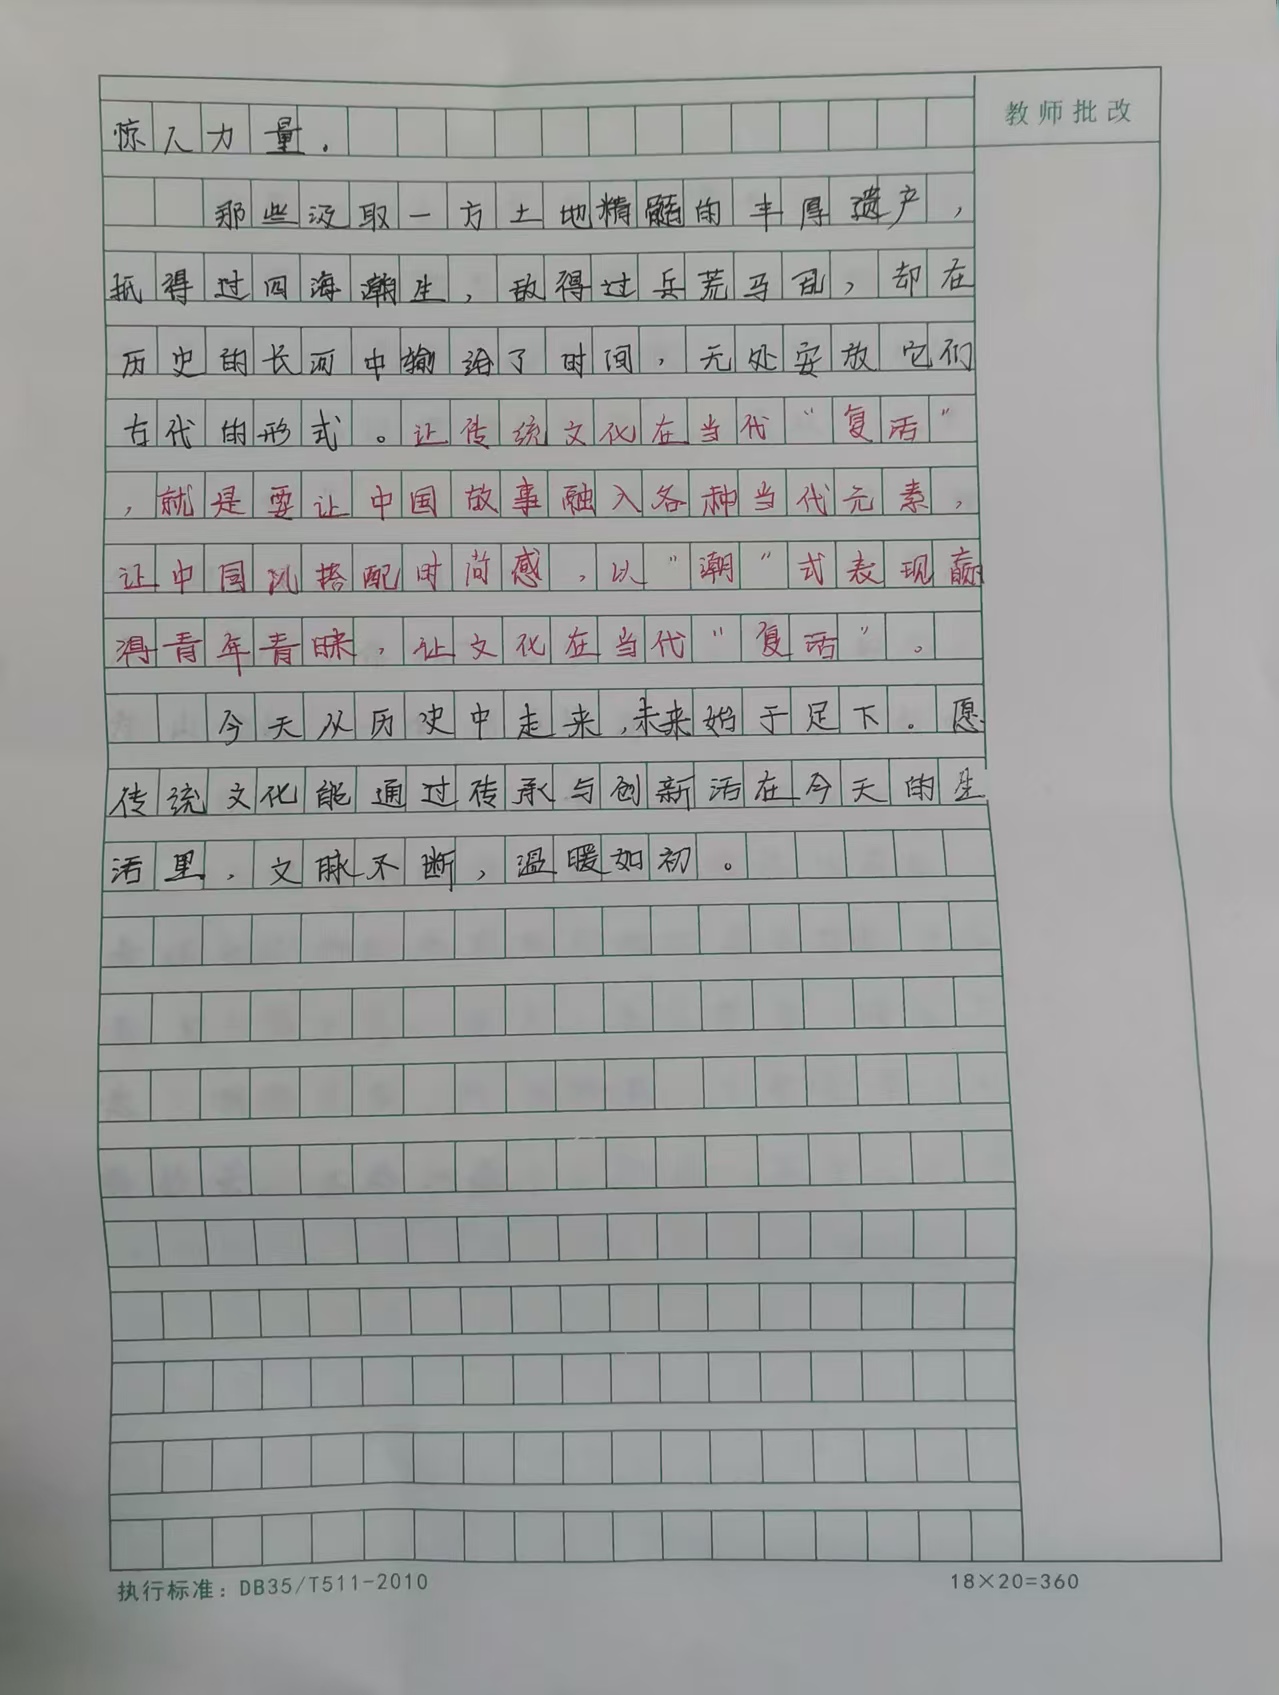 教师批改
惊人力量.
那些汲取一方土地精髓的丰厚遗产,
抵得过四海潮生,敌得过兵荒马乱,却在
历史的长河中输给了时间,无处安放它们
古代的形式。让传统文化在当代“复活”
,就是要让中国故事融入各种当代元素,
让中国风搭配时尚感,以“潮”式表现赢
得青年青睐,让文化在当代“复活”。
今天从历史中走来,未来始于足下。愿
传统文化能通过传承与创新活在今天的生
活里,文脉不断,温暖如初。
执行标准:DB35/T511-2010
18×20=360